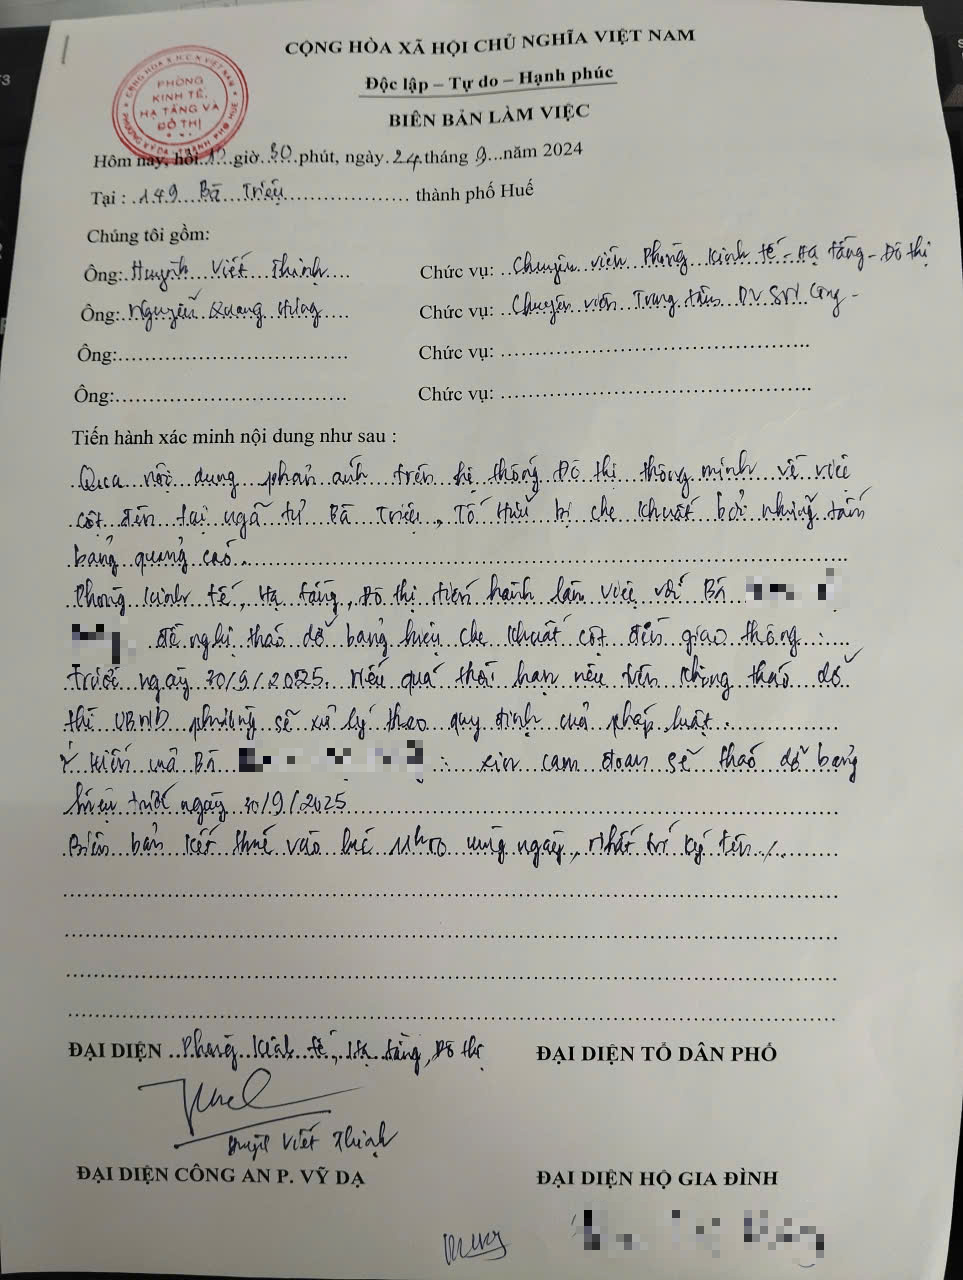 CỘNG HÒA XÃ HỘI CHỦ NGHĨA VIỆT NAM
Độc lập – Tự do – Hạnh phúc
CỘNG HÒA X.H.C.N VIỆT NAM
PHÒNG
KINH TẾ,
HẠ TẦNG VÀ
ĐÔ THỊ
PHƯỜNG VỸ DẠ - THÀNH PHỐ HUẾ
BIÊN BẢN LÀM VIỆC
Hôm nay, hồi giờ 30 phút, ngày 24 tháng 9 năm 2024
Tại : 149 Bà Triệu thành phố Huế
Chúng tôi gồm:
Ông: Huỳnh Viết Thịnh Chức vụ: Chuyên viên Phòng Kinh tế - Hạ tầng - Đô thị
Ông: Nguyễn Quang Hưng Chức vụ: Chuyên viên Trung tâm DV SN Công
Ông: Chức vụ:
Ông: Chức vụ:
Tiến hành xác minh nội dung như sau :
Qua nội dung phản ánh trên hệ thống Đô thị thông minh về việc
cột đèn tại ngã tư Bà Triệu, Tố Hữu bị che khuất bởi những tấm
bảng quảng cáo.
Phòng Kinh tế, Hạ tầng, Đô thị tiến hành làm việc với Bà
đề nghị tháo dỡ bảng hiệu che khuất cột đèn giao thông
trước ngày 30/9/2025. Nếu quá thời hạn nêu trên không tháo dỡ
thì UBND phường sẽ xử lý theo quy định của pháp luật.
Ý kiến của Bà : xin cam đoan sẽ tháo dỡ bảng
hiệu trước ngày 30/9/2025
Biên bản kết thúc vào lúc cùng ngày, nhất trí ký tên./.
ĐẠI DIỆN Phòng Kinh tế, Hạ tầng, Đô thị ĐẠI DIỆN TỔ DÂN PHỐ
Huỳnh Viết Thịnh
ĐẠI DIỆN CÔNG AN P. VỸ DẠ ĐẠI DIỆN HỘ GIA ĐÌNH